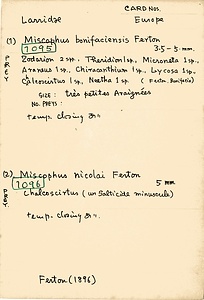 CARD NOS.
Larridae Europe
(1) Miscophus bonifaciensis Ferton
1095 3.5-5 mm.
PREY
Zodarion 2 sp., Theridion 1 sp., Micrometa 1 sp.,
Araneus 1 sp., Chiracanthium 1 sp., Lycosa 1 sp.
Calcoscirtus 1 sp., Nestha 1 sp. (Ferton. Bonifacio)
SIZE: très petites Araignées
NO. PREYS:
temp. closing
(2) Miscophus nicolai Ferton
1096 5 mm
PREY.
Chalcoscirtus (un Salticide minuscule)
temp. closing
Ferton (1896)